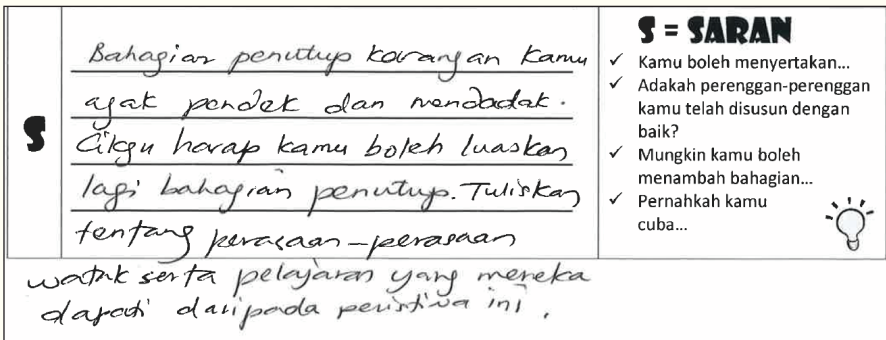 S
Bahagian penutup karangan kamu
agak pendek dan mendadak.
Cikgu harap kamu boleh luaskan
lagi bahagian penutup. Tuliskan
tentang perasaan-perasaan
watak serta pelajaran yang mereka
dapati daripada peristiwa ini.
S = SARAN
✓ Kamu boleh menyertakan...
✓ Adakah perenggan-perenggan
kamu telah disusun dengan
baik?
✓ Mungkin kamu boleh
menambah bahagian...
✓ Pernahkah kamu
cuba...